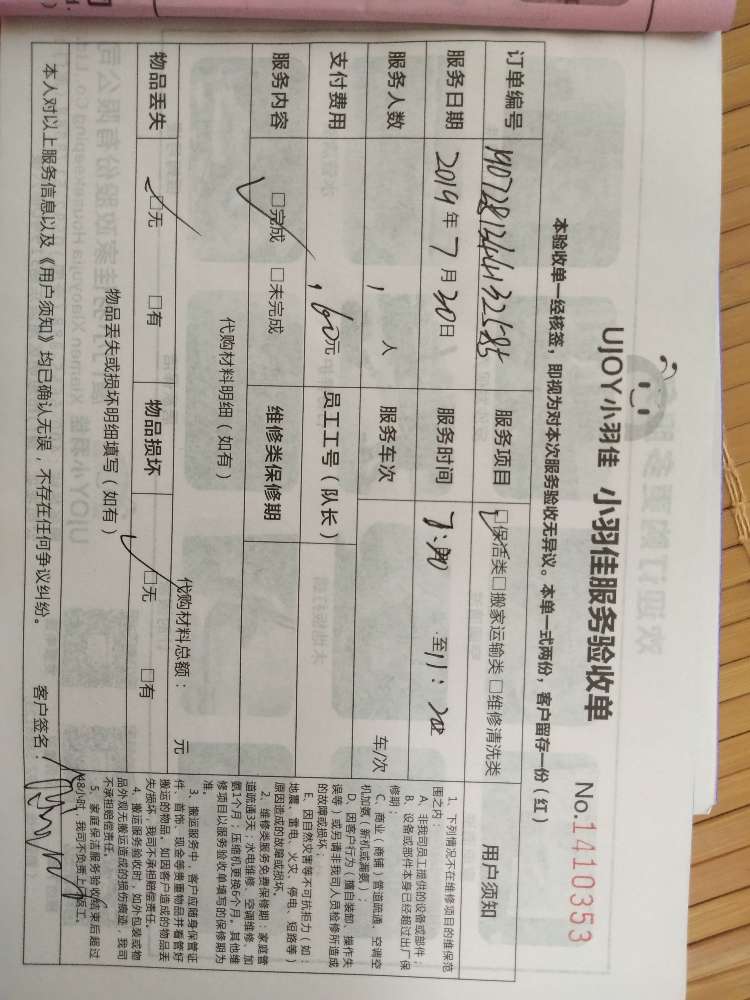 UJOY小羽佳 小羽佳服务验收单
No.1410353
本验收单一经核签，即视为对本次服务验收无异议。本单一式两份，客户留存一份（红）
订单编号 服务项目 □保洁类□搬家运输类□维修清洗类
服务日期 2019年7月30日 服务时间 至11：
服务人数 人 服务车次 车/次
支付费用 160元 员工工号（队长）
服务内容 □完成 □未完成 维修类保修期
代购材料明细（如有） 代购材料总额： 元
物品丢失 □无 □有 物品损坏 □无 □有
物品丢失或损坏明细填写（如有）
本人对以上服务信息以及《用户须知》均已确认无误，不存在任何争议纠纷。 客户签名：
用户须知
1、下列情况不在维修项目的维保范
围之内：
A、非我司员工提供的设备或部件；
B、设备或部件本身已经超过出厂保
修期；
C、商业（商铺）管道疏通、空调空
机加氨（新机或漏氨）；
D、因客户行为（擅自装卸、操作失
误等）或另请非我司人员检修所造成
的故障或损坏；
E、因自然灾害等不可抗拒力（如：
地震、雷电、火灾、停电、短路等）
原因造成的故障或损坏。
2、维修类服务免费保修期：家庭管
道疏通3天；水电维修、空调维修、加
氨1个月；压缩机更换6个月。其他维
修项目以服务验收单填写的保修期为
准。
3、搬运服务中，客户应随身保管证
件、首饰、现金等贵重物品并看管好
搬运的物品。如因客户造成的物品丢
失/损坏，我司不承担赔偿责任。
4、搬运服务验收时，如外包装或物
品外观无搬运造成的损伤痕迹，我司
不承担赔偿责任。
5、家庭保洁服务验收结束后超过
48小时，我司不负责上门返工。